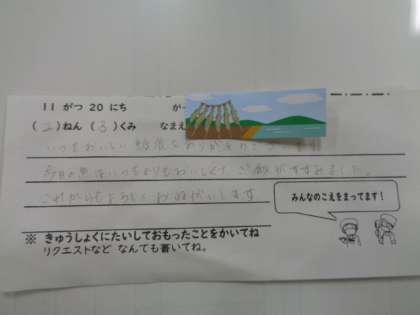 11 がつ 20 にち が
(2)ねん (3)くみ なまえ
いつもおいしい給食をありがとう
今日の魚はいつもよりもおいしくて ご飯がすすみました。
これからもよろしくお願いします
みんなのこえをまってます!
※ きゅうしょくにたいしておもったことをかいてね
リクエストなど なんでも書いてね。